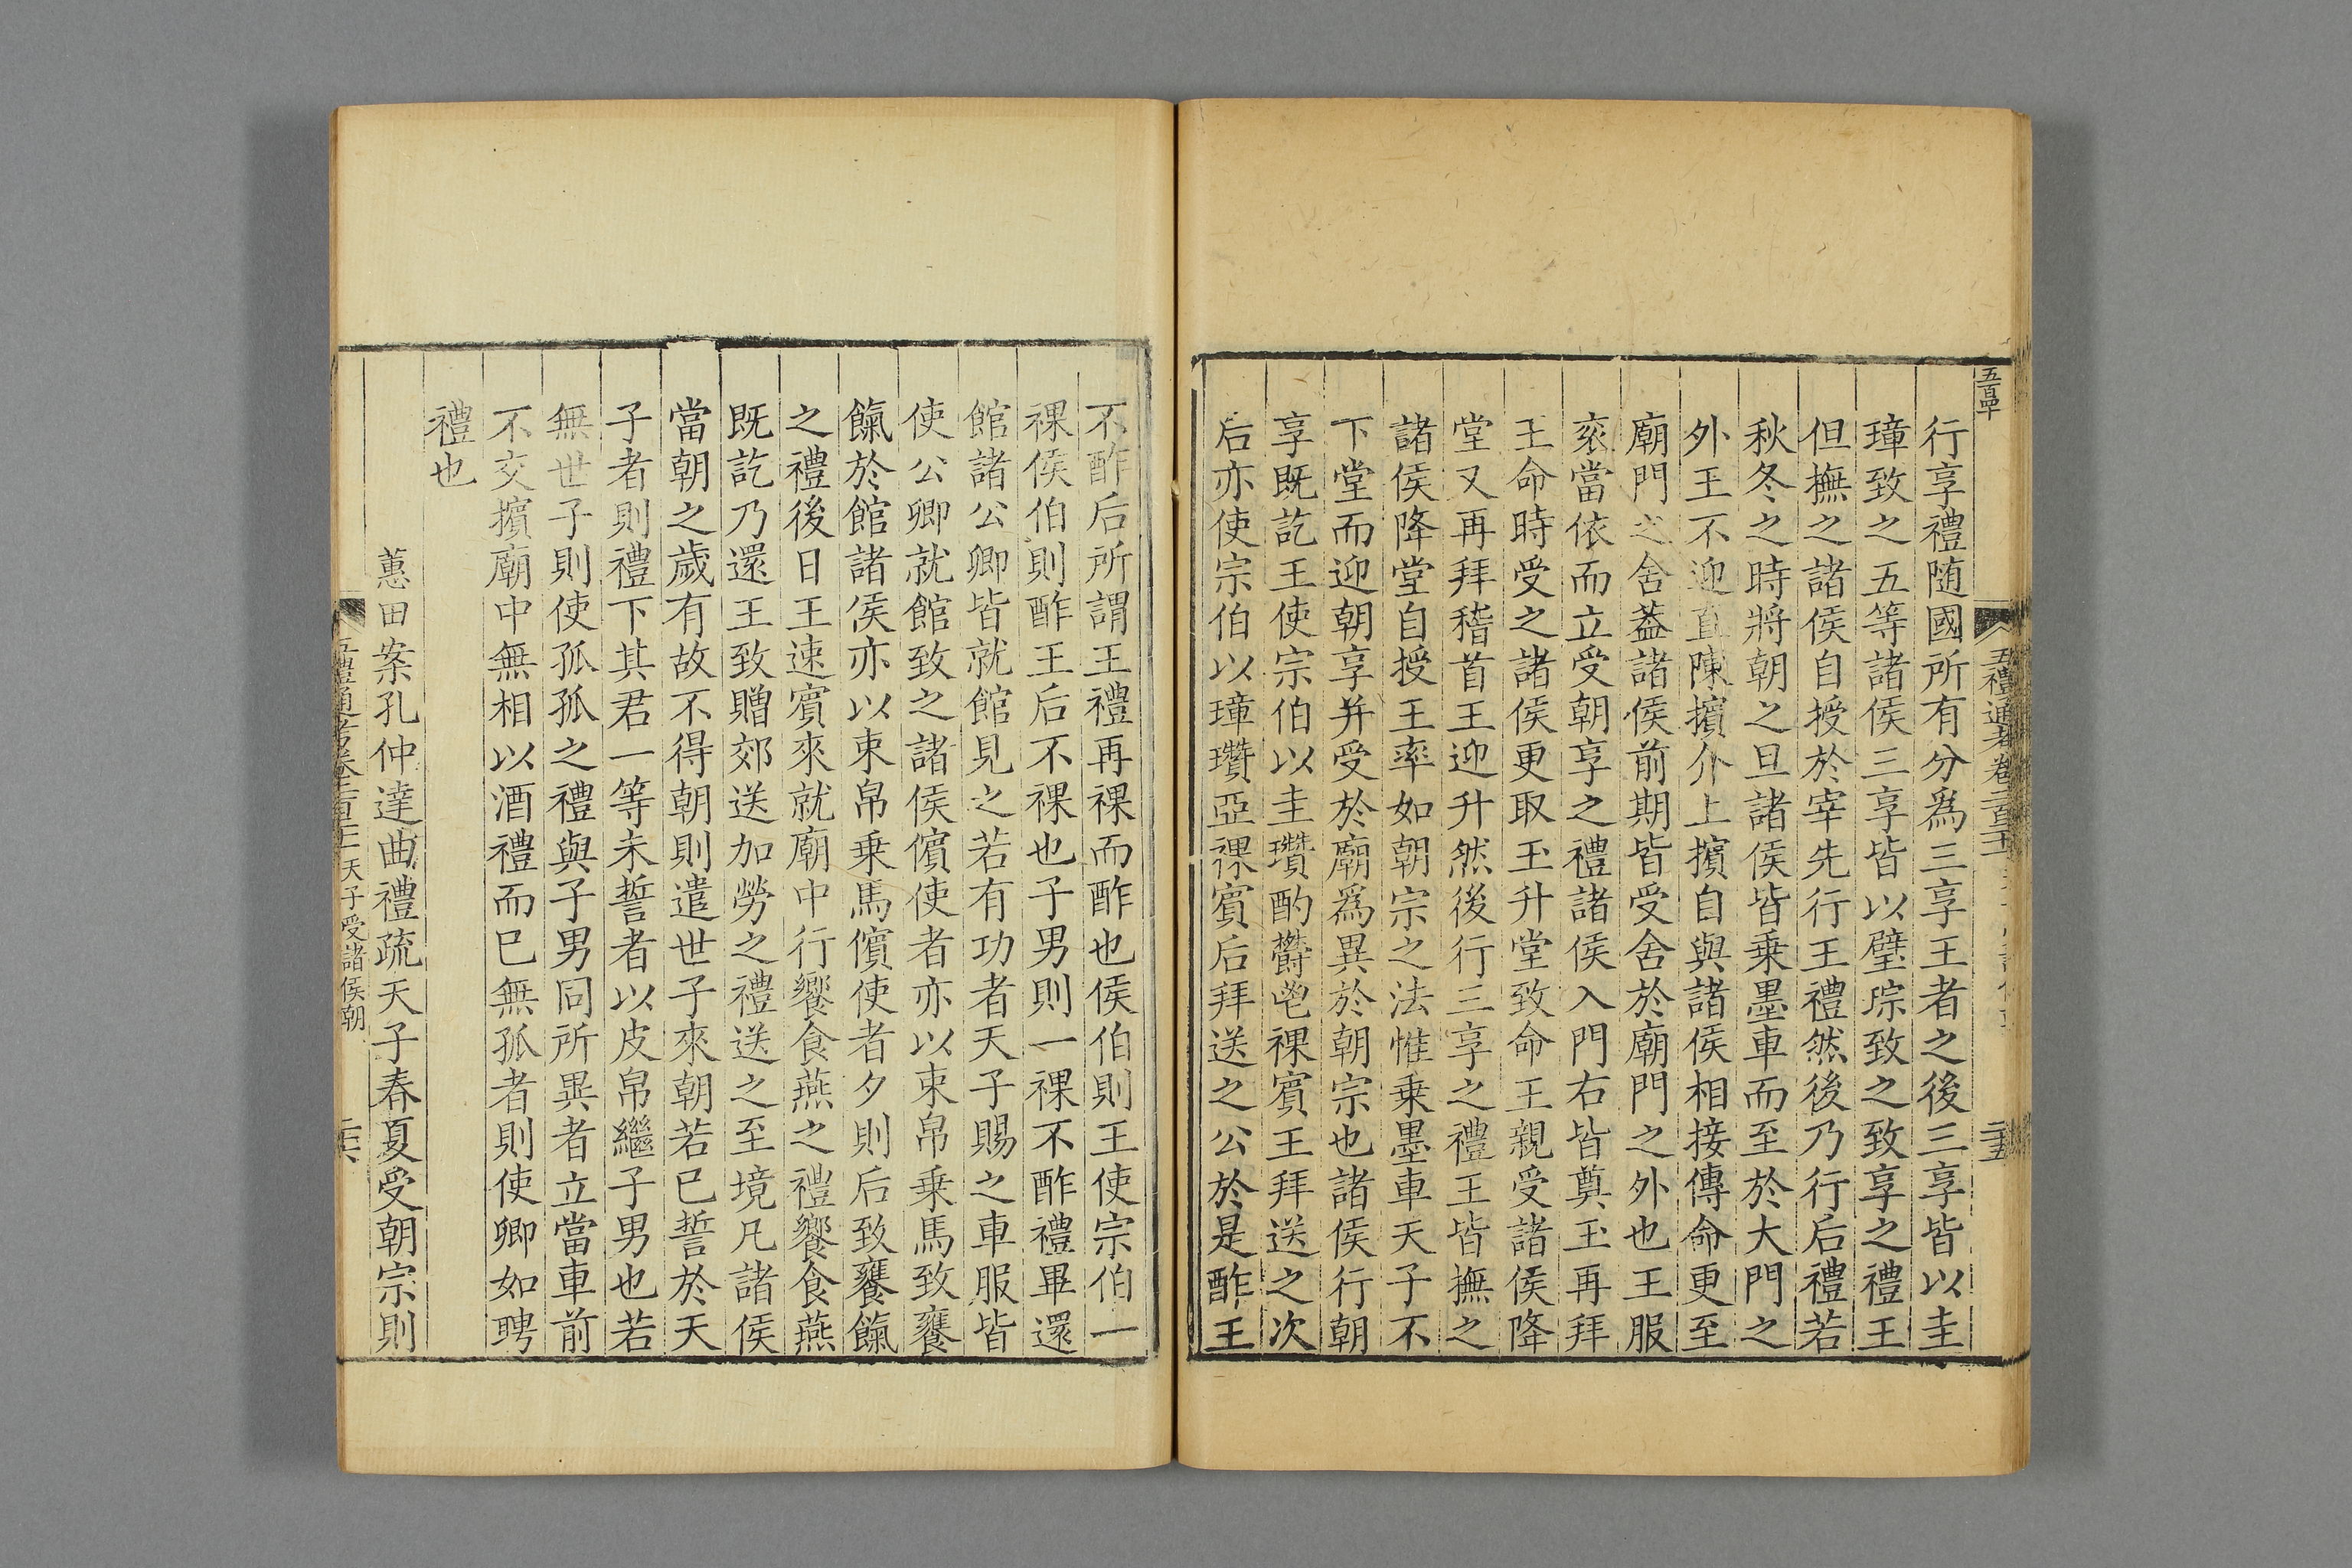 五禮通考卷二百二十
二十五
行享禮随國所有分爲三享王者之後三享皆以圭
璋致之五等諸侯三享皆以璧琮致之致享之禮王
但撫之諸侯自授於宰先行王禮然後乃行后禮若
秋冬之時將朝之旦諸侯皆乗墨車而至於大門之
外王不迎直陳擯介上擯自與諸侯相接傳命更至
廟門之舍葢諸侯前期皆受舍於廟門之外也王服
衮當依而立受朝享之禮諸侯入門右皆奠玉再拜
王命時受之諸侯更取玉升堂致命王親受諸侯降
堂又再拜稽首王迎升然後行三享之禮王皆撫之
諸侯降堂自授王率如朝宗之法惟乗墨車天子不
下堂而迎朝享并受於廟爲異於朝宗也諸侯行朝
享既訖王使宗伯以圭瓚酌欝鬯祼賓王拜送之次
后亦使宗伯以璋瓚亞祼賓后拜送之公於是酢王
不酢后所謂王禮再祼而酢也侯伯則王使宗伯一
祼侯伯則酢王后不祼也子男則一祼不酢禮畢還
館諸公卿皆就館見之若有功者天子賜之車服皆
使公卿就館致之諸侯儐使者亦以束帛乗馬致饔
餼於館諸侯亦以束帛乗馬儐使者夕則后致饔餼
之禮後日王速賓來就廟中行饗食燕之禮饗食燕
既訖乃還王致贈郊送加勞之禮送之至境凡諸侯
當朝之歲有故不得朝則遣世子來朝若已誓於天
子者則禮下其君一等未誓者以皮帛繼子男也若
無世子則使孤孤之禮與子男同所異者立當車前
不交擯廟中無相以酒禮而已無孤者則使卿如聘
禮也
蕙田案孔仲達曲禮疏天子春夏受朝宗則
天子受諸侯朝
二十六